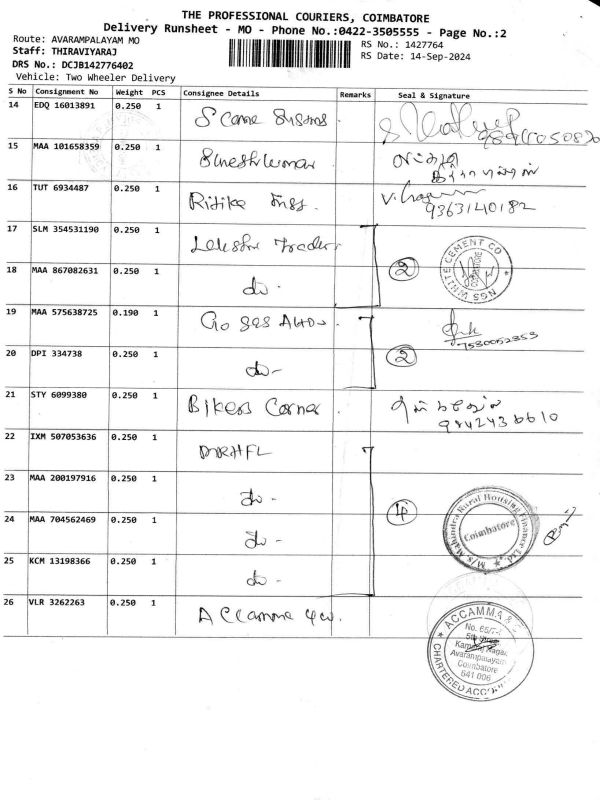 THE PROFESSIONAL COURIERS, COIMBATORE
Delivery Runsheet - MO - Phone No.:0422-3505555 - Page No.:2
Route: AVARAMPALAYAM MO
RS No.: 1427764
Staff: THIRAVIYARAJ
RS Date: 14-Sep-2024
DRS No.: DCJB142776402
Vehicle: Two Wheeler Delivery
S No Consignment No Weight PCS Consignee Details Remarks Seal & Signature
14 EDQ 16013891 0.250 1
15 MAA 101658359 0.250 1 Sureshkumar
16 TUT 6934487 0.250 1 Ritika
9363140182
17 SLM 354531190 0.250 1 Lakshmi Traders
2
NGS WHITE CEMENT CO
COIMBATORE
18 MAA 867082631 0.250 1
19 MAA 575638725 0.190 1 Go Gas Auto
20 DPI 334738 0.250 1
2
21 STY 6099380 0.250 1 Bikers Corner
9842436610
22 IXM 507053636 0.250 1 MRHFL
23 MAA 200197916 0.250 1
4
M/s. Mahindra Rural Housing Finance Ltd.
Coimbatore
24 MAA 704562469 0.250 1
25 KCM 13198366 0.250 1
26 VLR 3262263 0.250 1 Accamma &co.
ACCAMMA &
No. 65/7-
5th
Kamaraj Nagar,
Avarampalayam
Coimbatore
641 006
CHARTERED ACCOU